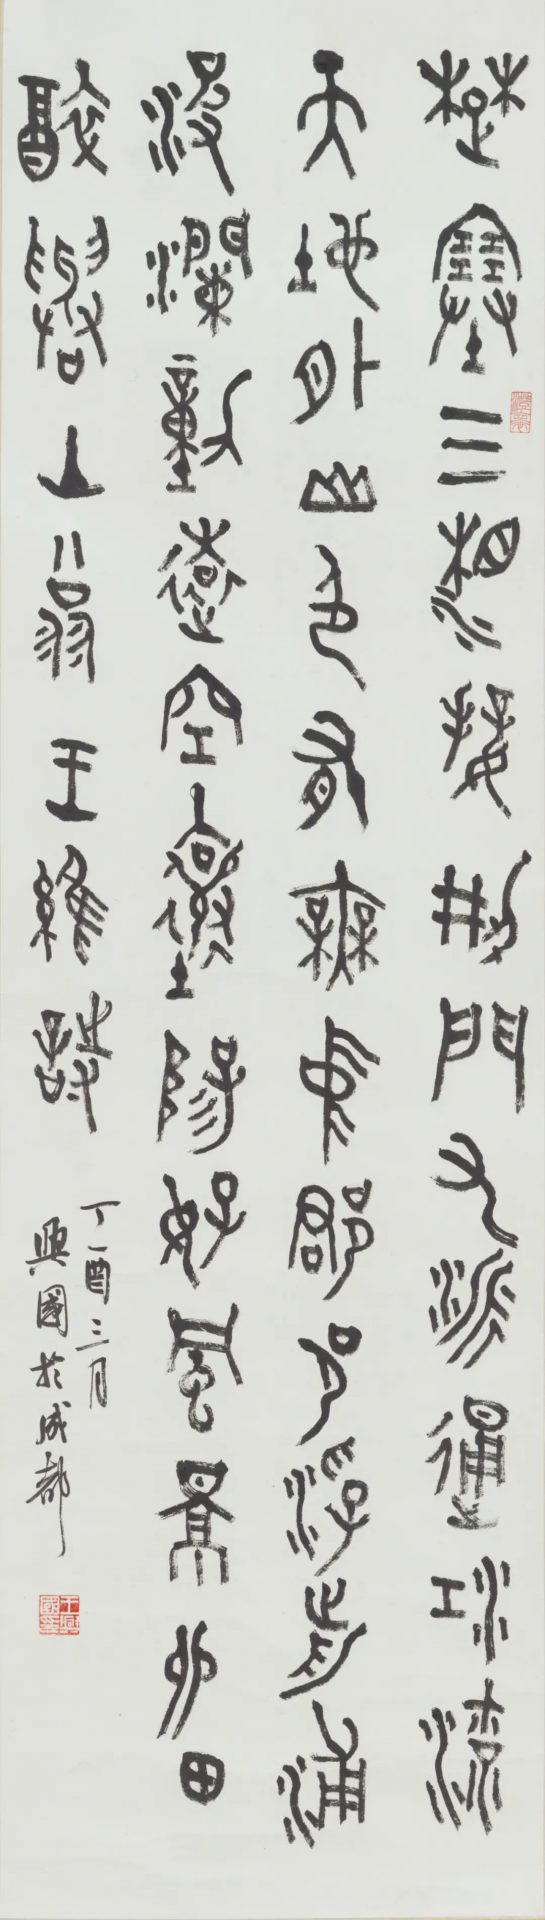 楚塞三湘接荊門九派通江流
天地外山色有無中郡邑浮前浦
波瀾動遠空襄陽好風景留
醉與山翁王維詩
丁酉三月
興國於成都